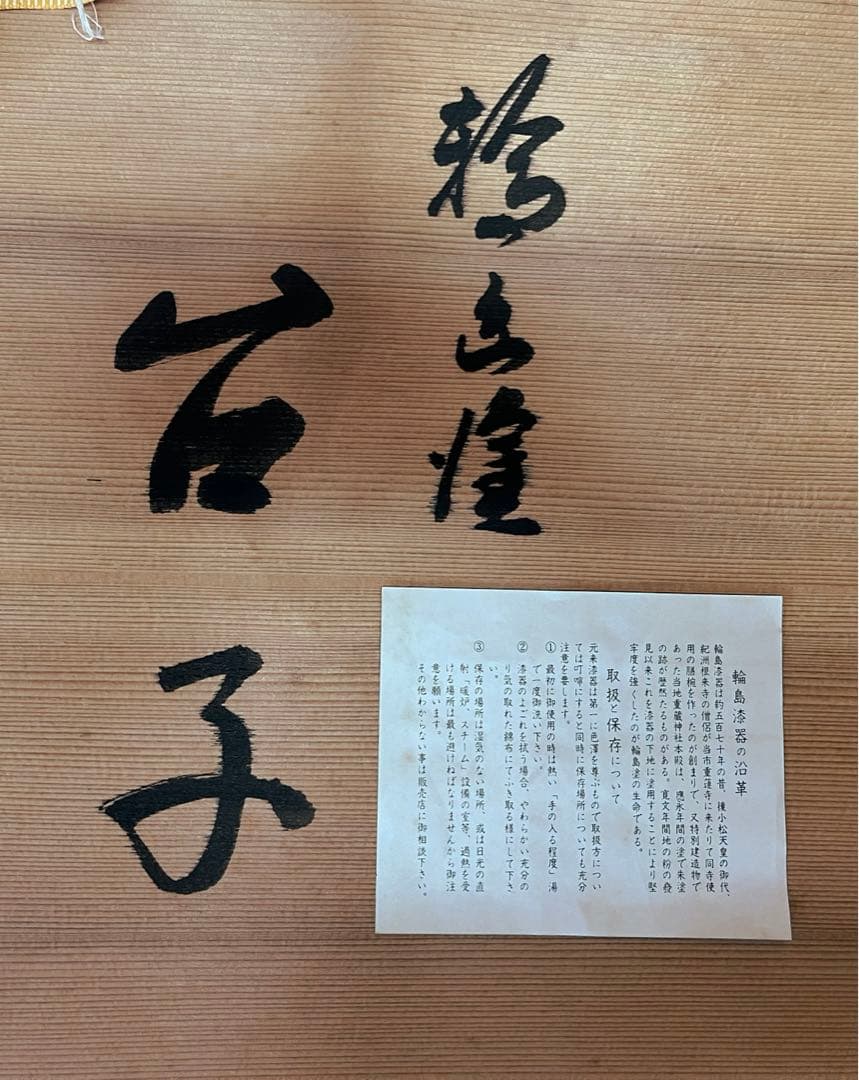 輪島塗
台子
輪島漆器の沿革
輪島漆器は約五百七十年の昔、後小松天皇の御代、
紀洲根来寺の僧侶が当市重蓮寺に来たりて同寺使
用の膳椀を作ったのが創まりで、又特別建造物で
あった当地重蔵神社本殿は、應永年間の塗で朱塗
の跡が歴然たるものがある。寛文年間地の粉の發
見以来これを漆器の下地に塗用することにより堅
牢度を強くしたのが輪島塗の生命である。
取扱と保存について
元来漆器は第一に色澤を尊ぶもので取扱方につい
ては叮嚀にすると同時に保存場所についても充分
注意を要します。
① 最初に御使用の時は熱い「手の入る程度」湯
で一度御洗い下さい。
② 漆器のよごれを拭う場合、やわらかい充分の
り気の取れた錦布にてふき取る様にして下さ
い。
③ 保存の場所は湿気のない場所、或は日光の直
射「暖炉、スチーム」設備の室等、過熱を受
ける場所は最も避けねばなりませんから御注
意を願います。
その他わからない事は販売店に御相談下さい。